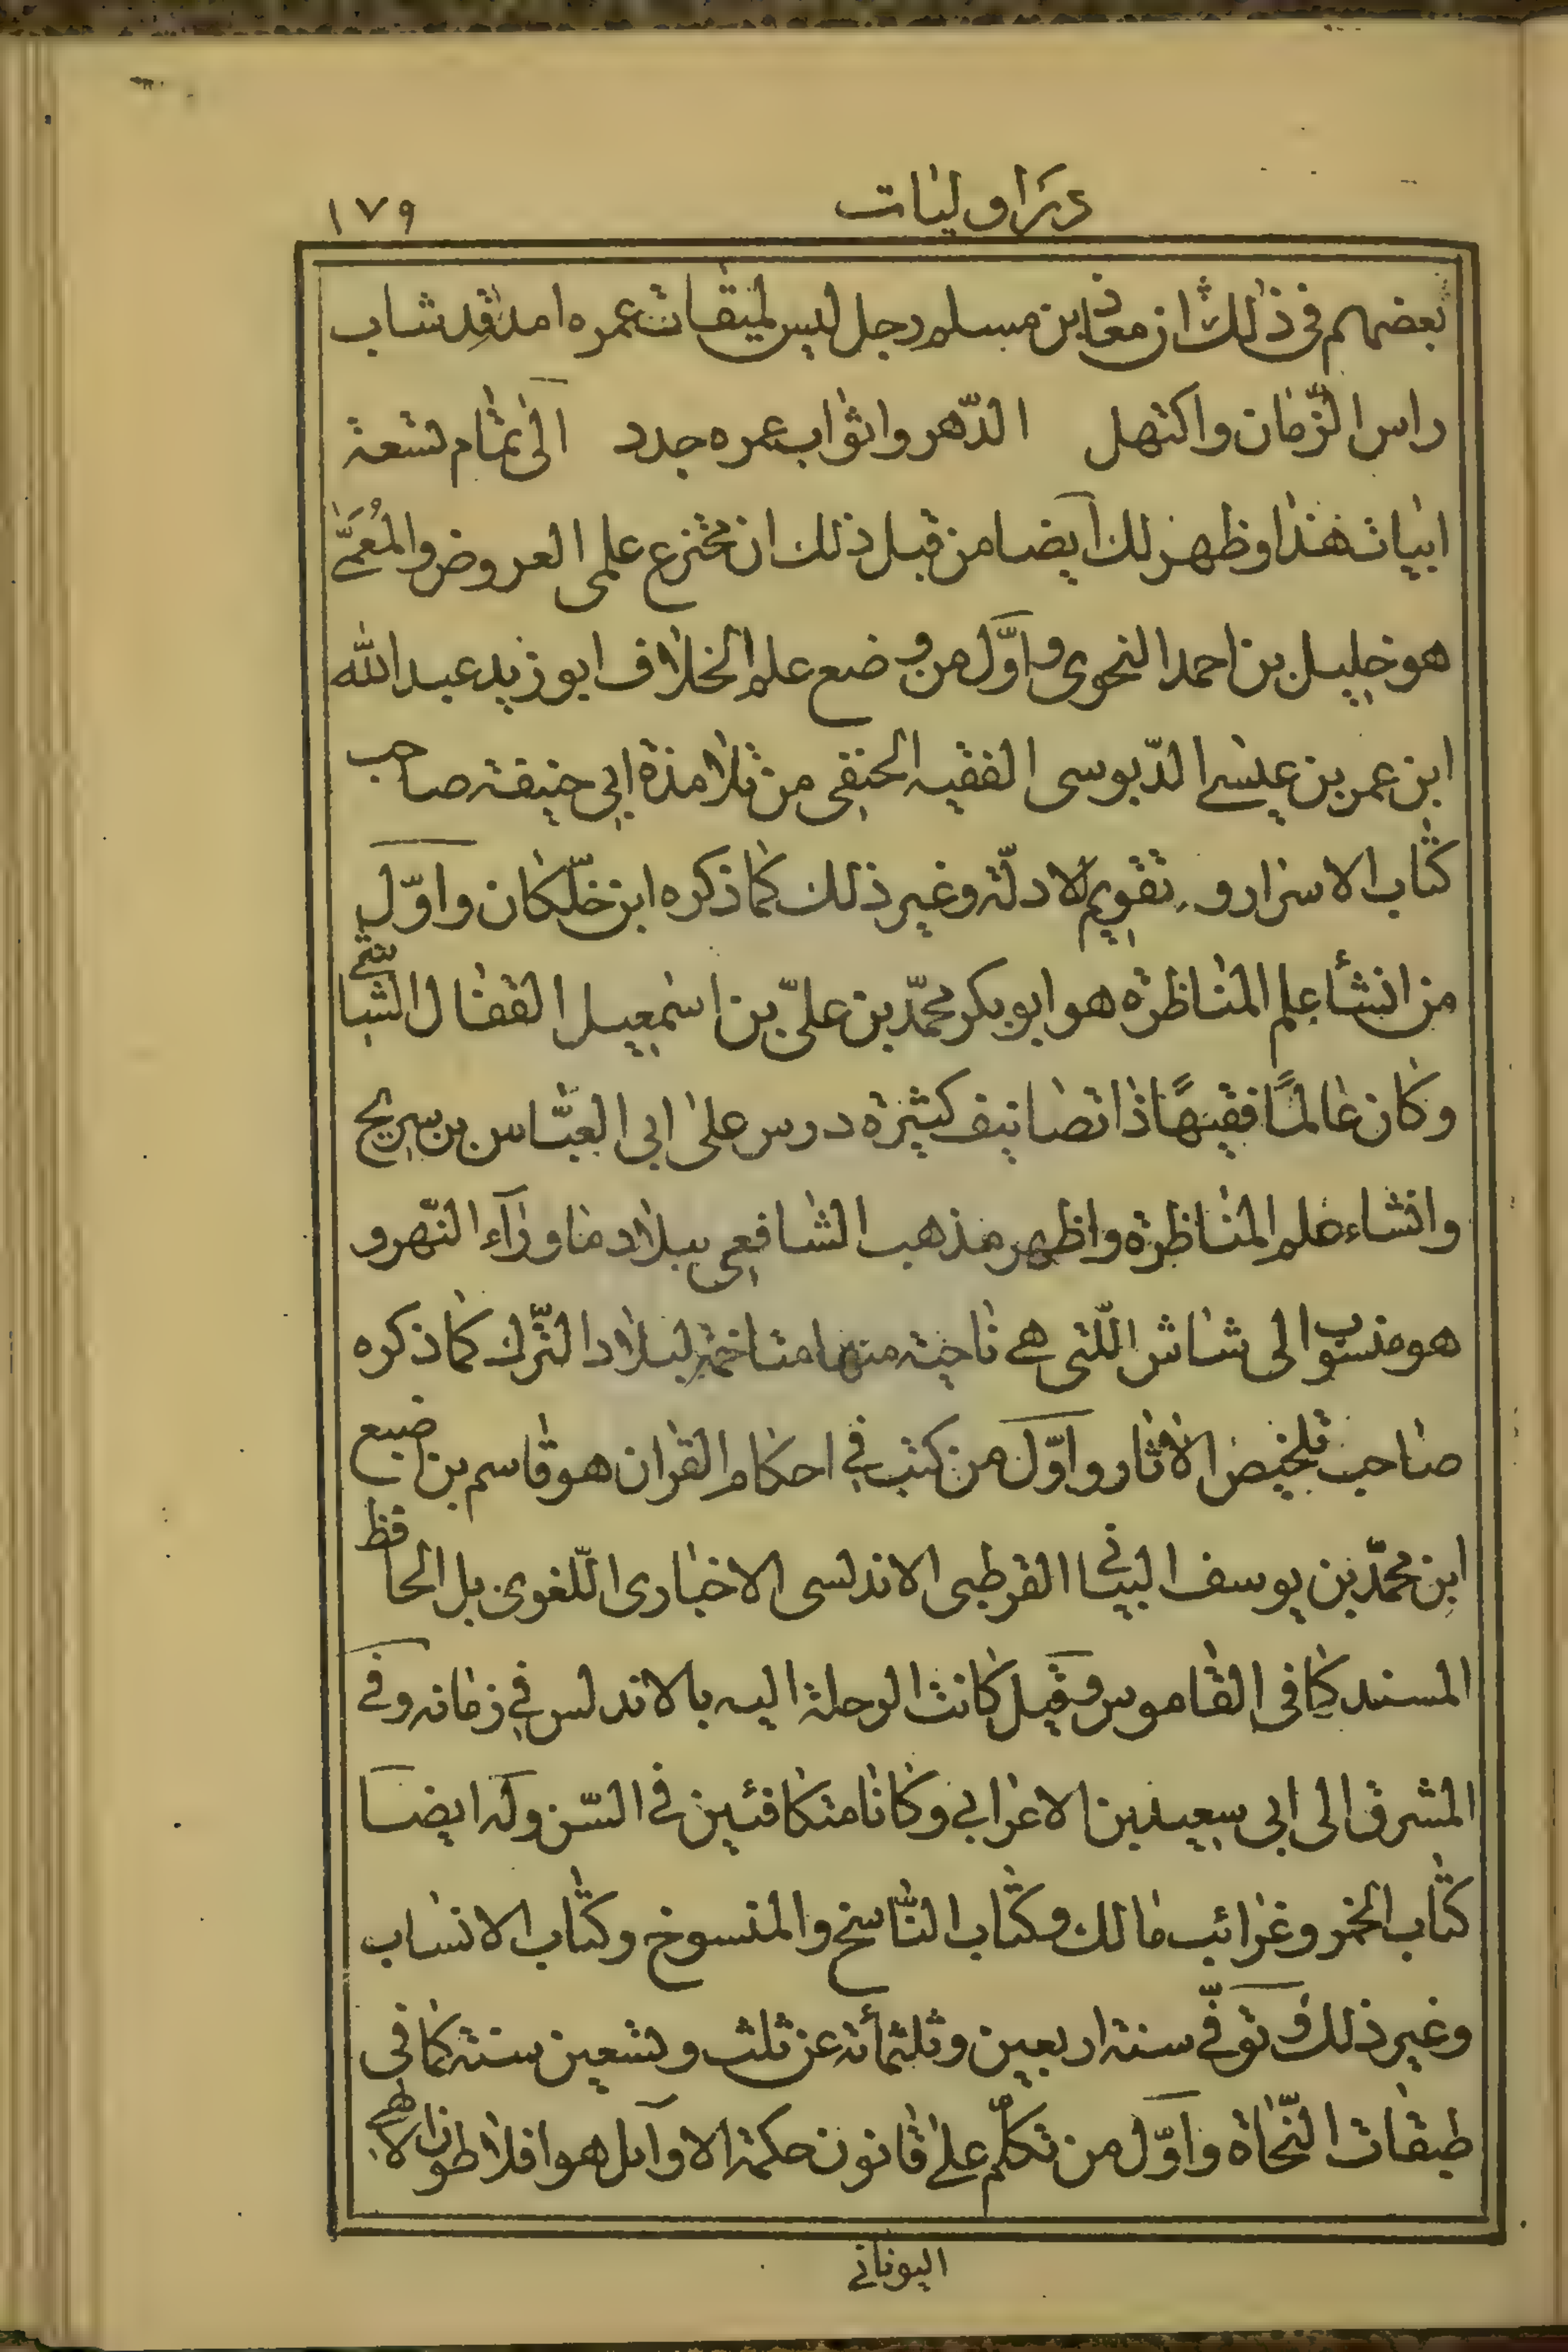 در اوليات ١٧٩
بعضهم فى ذلك ان معاذ ابن مسلم رجل ليس لميقات عمره امد قد شاب
راس الزّمان واكتهل الدّهر واثواب عمره جدد الى تمام تسعة
ابيات هذا وظهر لك ايضا من قبل ذلك ان مخترع علمى العروض والمُعَمّى
هو خليل بن احمد النحوى واوّل من وضع علم الخلاف ابو زيد عبد الله
ابن عمر بن عيسى الدّبوسى الفقيه الحنفى من تلامذة ابي حنيفة صاحب
كتاب الاسرار و تقويم الادلّة وغير ذلك كما ذكره ابن خلّكان واوّل
من انشأ علم المناظرة هو ابو بكر محمّد بن علىّ بن اسمعيل القفال الشاشى
وكان عالمًا فقيهًا ذا تصانيف كثيرة درس على ابى العبّاس بن سريج
وانشاء علم المناظرة واظهر مذهب الشافعى ببلاد ماوراء النّهر و
هو منسوب الى شاش اللّتى هي ناحية منها متاخمة لبلاد التّرك كما ذكره
صاحب تلخيص الاثار واوّل من كتب في احكام القران هو قاسم بن اصبع
ابن محمّد بن يوسف البيانى القرطبى الاندلسى الاخبارى اللّغوى بل الحافظ
المسند كما فى القاموس وقيل كانت الرحلة اليه بالاندلس في زمانه وفى
المشرق الى ابى سعيد بن الاعرابي وكانا متكافئين فى السّن وله ايضا
كتاب الخمر وغرائب مالك وكتاب النّاسخ والمنسوخ وكتاب الانساب
وغير ذلك وتوفّى سنة اربعين وثلثمأئة عن ثلث وتسعين سنة كما فى
طبقات النّحاة واوّل من تكلّم على قانون حكمة الاوآئل هو افلاطون الالهى
اليونانى